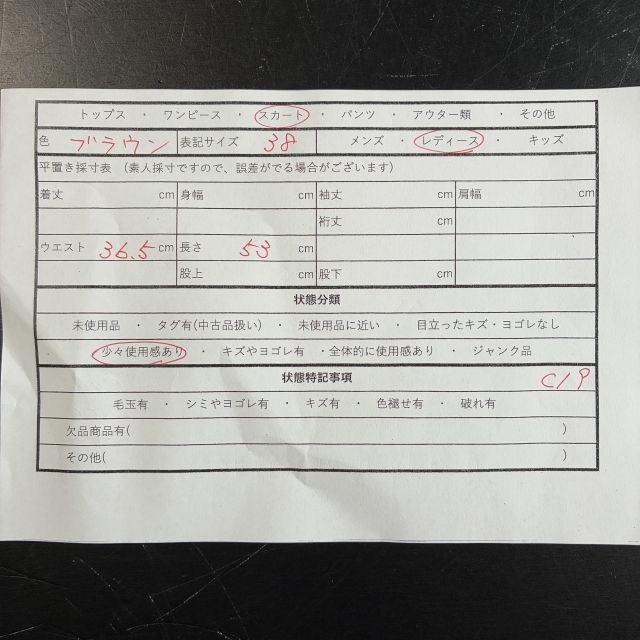 トップス ・ ワンピース ・ スカート ・ パンツ ・ アウター類 ・ その他
色 ブラウン 表記サイズ 38 メンズ ・ レディース ・ キッズ
平置き採寸表 (素人採寸ですので、誤差がでる場合がございます)
着丈 cm 身幅 cm 袖丈 cm 肩幅 cm
裄丈 cm
ウエスト 36.5 cm 長さ 53 cm
股上 cm 股下 cm
状態分類
未使用品 ・ タグ有(中古品扱い) ・ 未使用品に近い ・ 目立ったキズ・ヨゴレなし
少々使用感あり ・ キズやヨゴレ有 ・全体的に使用感あり ・ ジャンク品
状態特記事項 C19
毛玉有 ・ シミやヨゴレ有 ・ キズ有 ・ 色褪せ有 ・ 破れ有
欠品商品有( )
その他( )